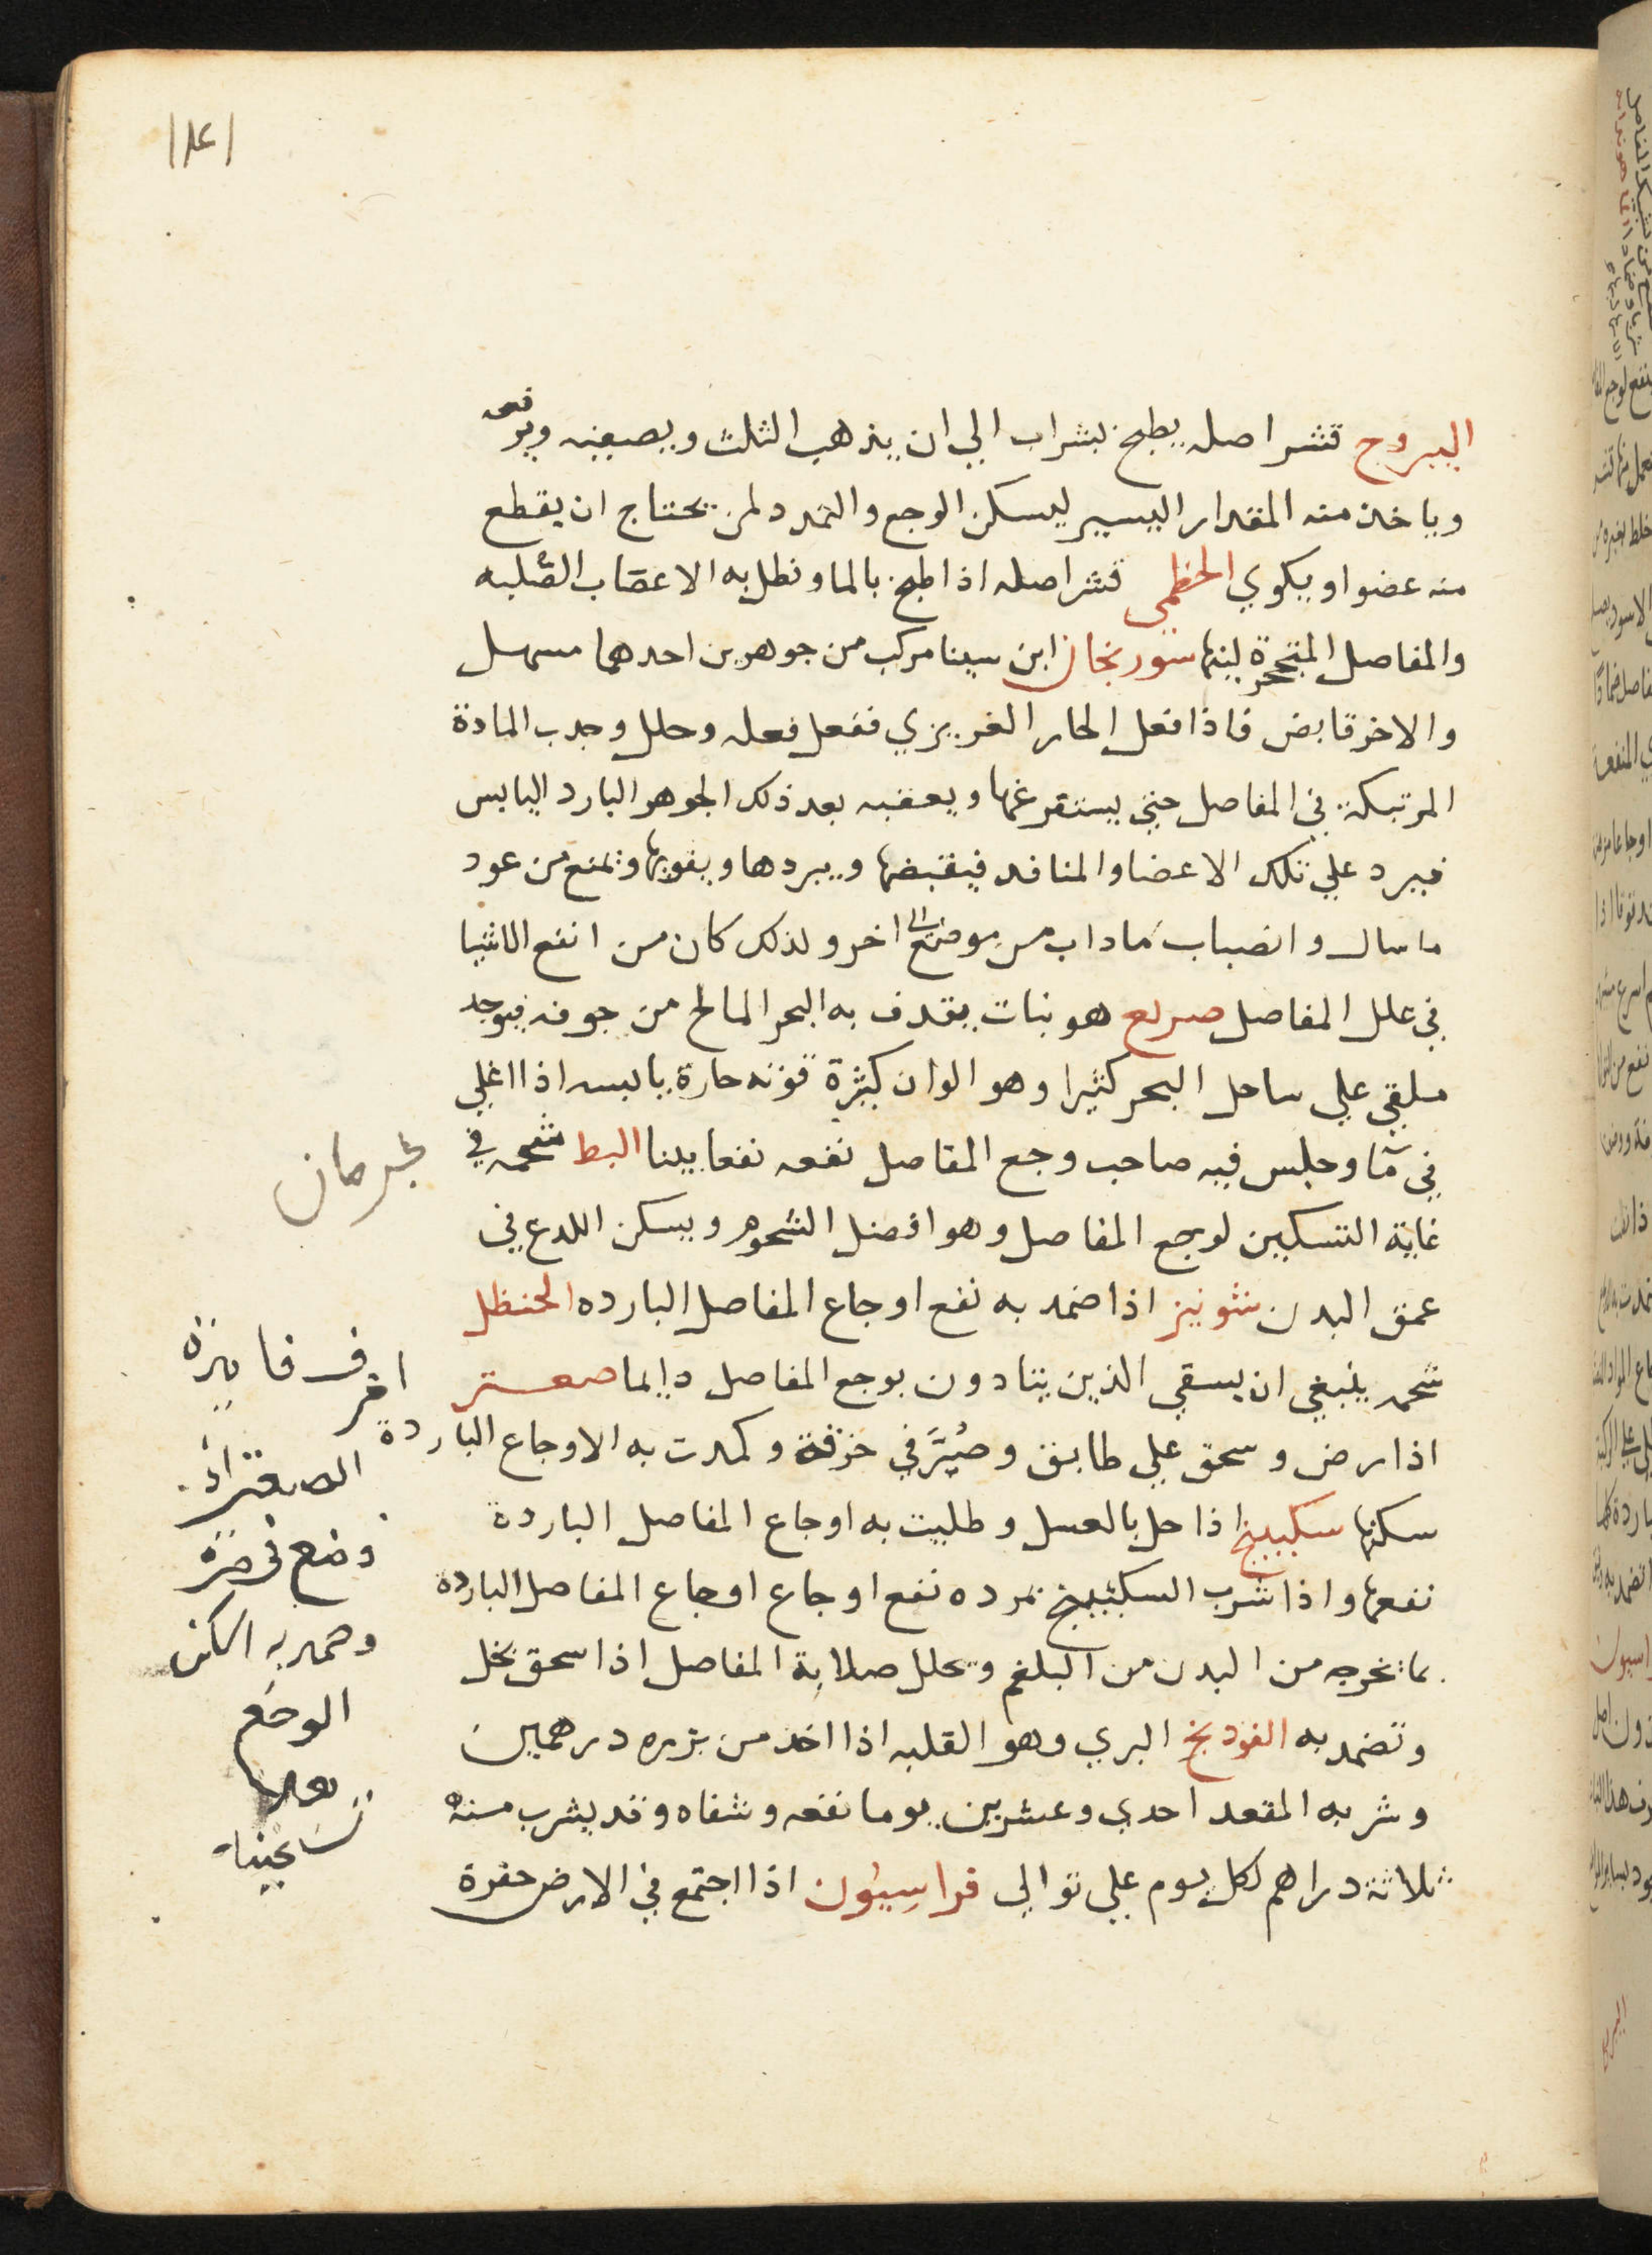 اليبروج قشر اصله يطبخ بشراب الي ان يذهب الثلث ويصفيه ويرفعه
وياخذ منه المقدار اليسير ليسكن الوجع والتمدد لمن يحتاج ان يقطع
منه عضوا او يكوي الخطمي قشر اصله اذا طبخ بالما ونطل به الاعصاب الصلبه
والمفاصل المتحجرة لينها سورنجان ابن سينا مركب من جوهرين احدهما مسهل
والاخر قابض فاذا فعل الحار الغريزي ففعل فعله وحلل وجدب المادة
المرتبكة في المفاصل حتي يستفرغها ويعقبه بعد ذلك الجوهر البارد اليابس
فيبرد علي تلك الاعضا والمنافد فيقبضها ويبردها ويقويها وتمنع من عود
ما سال وانصباب ماداب من موضع الى اخر ولذلك كان من انفع الاشيا
في علل المفاصل صريع هو نبات يقدف به البحر المالح من جوفه فيوجد
ملقي علي ساحل البحر كثيرا وهو الوان كثيرة قوته حارة يابسه اذا اغلي
في مآ وجلس فيه صاحب وجع المفاصل نفعه نفعا بينا البط شحمه في
غاية التسكين لوجع المفاصل وهو افضل الشحوم ويسكن اللدع في
عمق البدن شونيز اذا ضمد به نفع اوجاع المفاصل البارده الحنظل
شحمه ينبغي ان يسقي الذين يتادون بوجع المفاصل دايما صعتر
اذا رض وسحق علي طابق وصُيَّر في خرقة وكمدت به الاوجاع الباردة
سكنها سكبينج اذا حل بالعسل وطليت به اوجاع المفاصل الباردة
نفعها واذا شرب السكبينج نمرده نفع اوجاع اوجاع المفاصل الباردة
بما تخرجه من البدن من البلغم ويحلل صلابة المفاصل اذا سحق بخل
وتضمد به الفودنج البري وهو القليه اذا اخد من بزره درهمين
وشربه المقعد احدي وعشرين يوما نفعه وشفاه وقد يشرب منه
ثلاثة دراهم لكل يوم علي توالي فراسيون اذا اجتمع في الارض حفرة
اعرف فايدة
الصعتر اذا
وضع في خرقة
وضمد به
الوجع